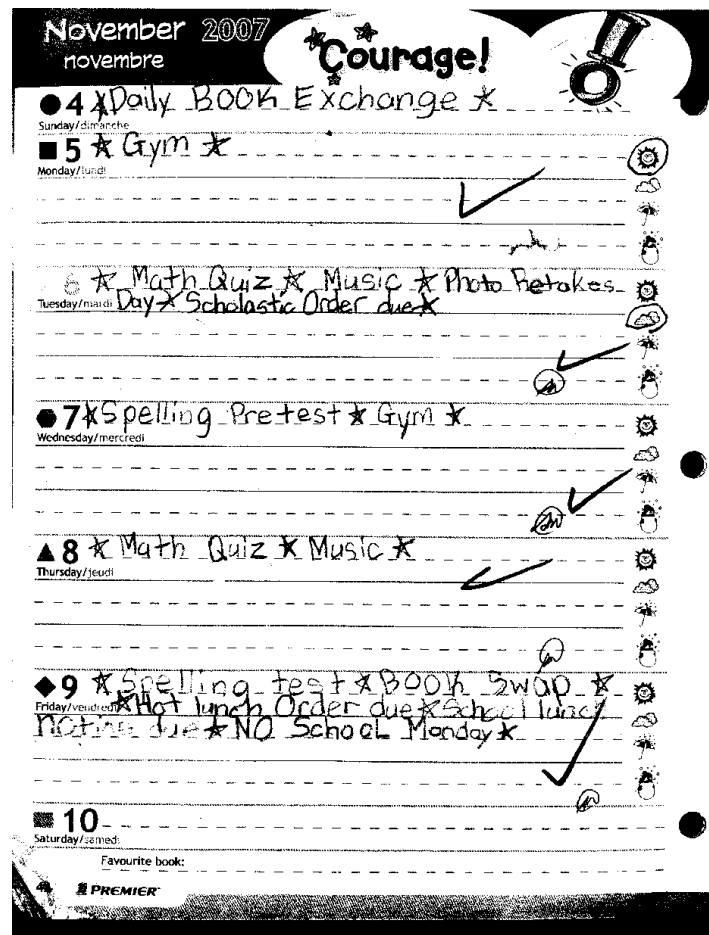 November 2007
novembre
Courage!
4 ☆ Daily BOOK Exchange ☆
Sunday/dimanche
5 ☆ Gym ☆
Monday/lundi
6 ☆ Math Quiz ☆ Music ☆ Photo Retakes
Tuesday/mardi Day ☆ Scholastic Order due ☆
7 ☆ Spelling Pretest ☆ Gym ☆
Wednesday/mercredi
8 ☆ Math Quiz ☆ Music ☆
Thursday/jeudi
9 ☆ Spelling test ☆ BOOK Swap ☆
Friday/vendredi ☆ Hot lunch Order due ☆ School lunch
notice due ☆ NO School Monday ☆
10
Saturday/samedi
Favourite book:
PREMIER